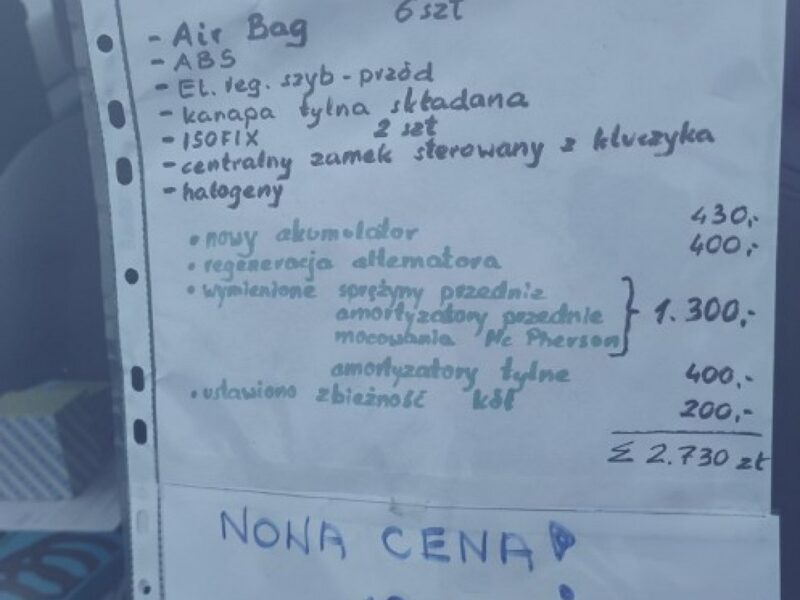 - Air Bag 6 szt
- ABS
- El. reg. szyb - przód
- kanapa tylna składana
- ISOFIX 2 szt
- centralny zamek sterowany z kluczyka
- halogeny
• nowy akumulator 430,-
• regeneracja alternatora 400,-
• wymienione sprężyny przednie
amortyzatory przednie } 1.300,-
mocowania Mc Pherson
amortyzatory tylne 400,-
• ustawiono zbieżność kół 200,-
Σ 2.730 zł
NOWA CENA!